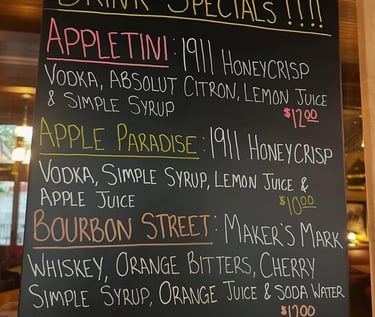 DRINK SPECIALS!!!!
APPLETINI: 1911 HONEYCRISP
VODKA, ABSOLUT CITRON, LEMON JUICE
& SIMPLE SYRUP $12.00
APPLE PARADISE: 1911 HONEYCRISP
VODKA, SIMPLE SYRUP, LEMON JUICE &
APPLE JUICE $10.00
BOURBON STREET: MAKER'S MARK
WHISKEY, ORANGE BITTERS, CHERRY
SIMPLE SYRUP, ORANGE JUICE & SODA WATER
$12.00